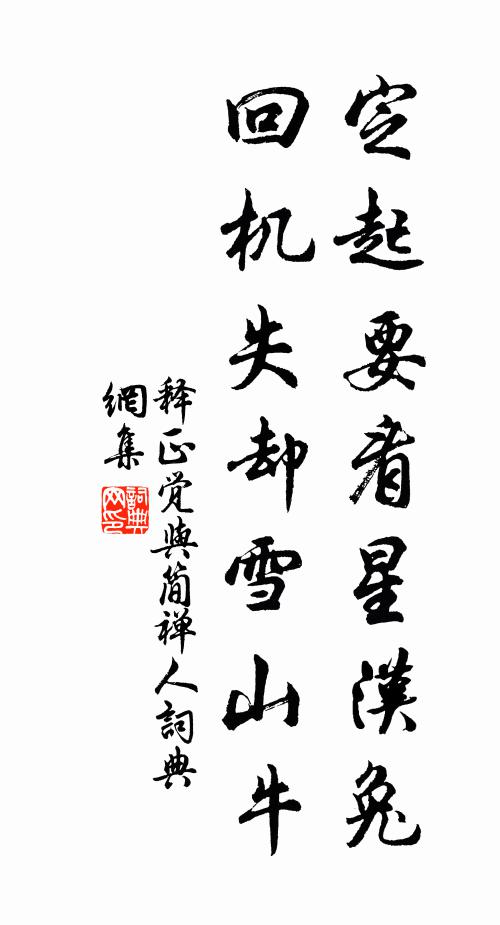 定起要看星漢兔
回机失却雪山牛
释正觉與简禅人詞典
網集
詞典
网印